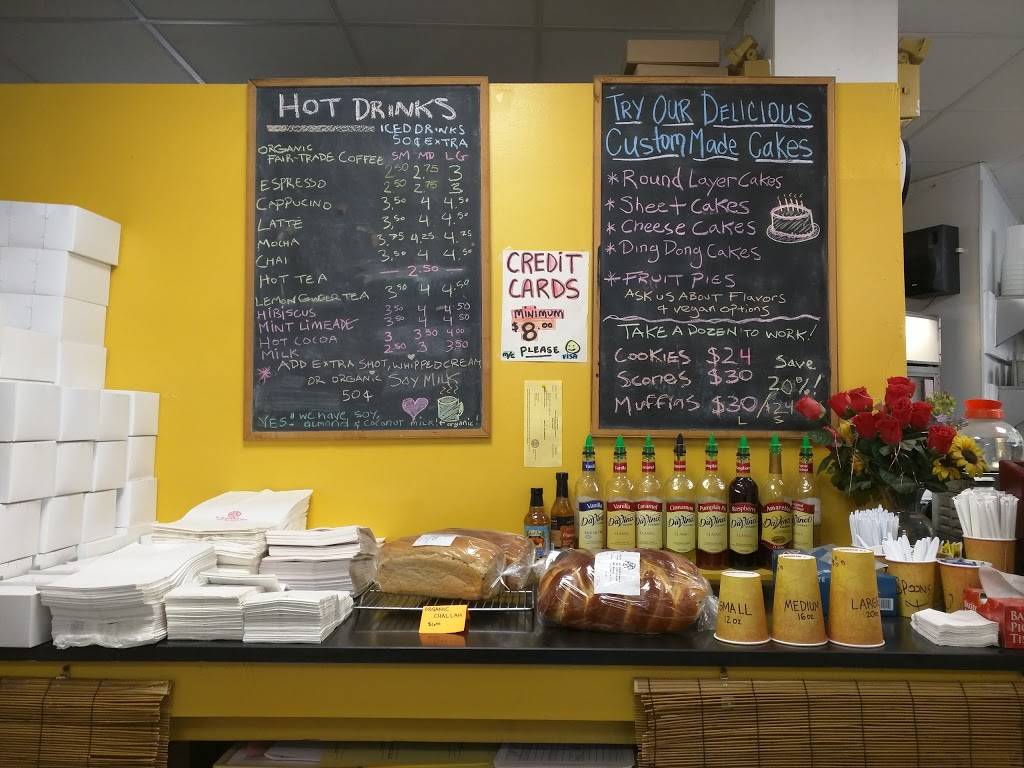 HOT DRINKS
ICED DRINKS
50¢ EXTRA
ORGANIC
FAIR-TRADE COFFEE SM MD LG
2.50 2.75 3
ESPRESSO 2.50 2.75 3
CAPPUCINO 3.50 4 4.50
LATTÉ 3.50 4 4.50
MOCHA 3.75 4.25 4.75
CHAI 3.50 4 4.50
HOT TEA — 2.50 —
LEMON GINGER TEA 3.50 4 4.50
HIBISCUS 3.50 4 4.50
MINT LIMEADE 3.50 4 4.50
HOT COCOA 3 3.50 4.00
MILK 2.50 3 3.50
* ADD EXTRA SHOT, WHIPPED CREAM,
OR ORGANIC SOY MILK
50¢
YES! we have soy,
almond & coconut milk! organic!
CREDIT
CARDS
MINIMUM
$8.00
PLEASE
M/C VISA
TRY OUR DELICIOUS
Custom Made Cakes
* Round Layer Cakes
* Sheet Cakes
* Cheese Cakes
* Ding Dong Cakes
* FRUIT PIES
ASK US ABOUT FLAVORS
& vegan options
TAKE A DOZEN TO WORK!
COOKIES $24
Scones $30
Muffins $30/$24
L S
Save
20%!
Vanilla
DaVinci
Vanilla
DaVinci
Caramel
DaVinci
Cinnamon
DaVinci
Pumpkin Pie
DaVinci
Raspberry
DaVinci
Amaretto
DaVinci
ORGANIC
CHALLAH
SMALL
12 oz
MEDIUM
16 oz
LARGE
20oz
SPOONS